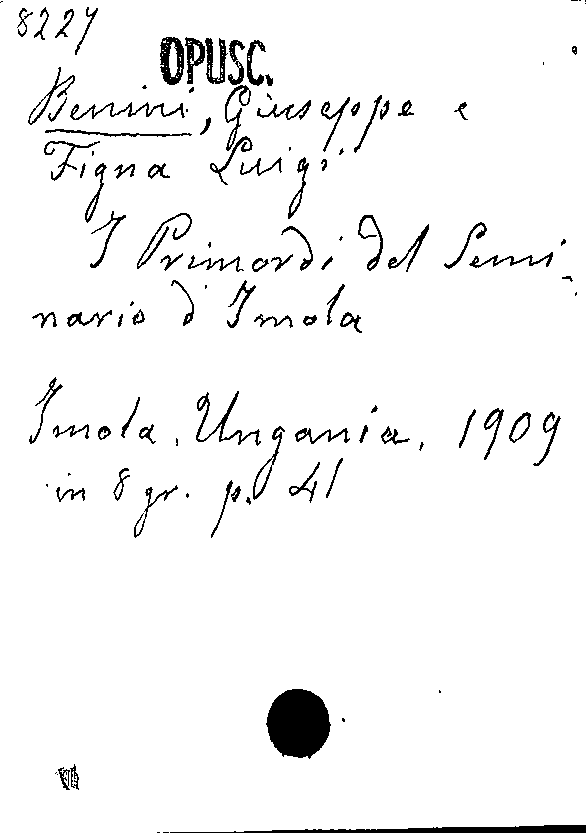 8227
OPUSC.
Benini, Giuseppe e
Figna Luigi
I Primordi del Semi-
nario d'Imola
Imola, Ungania, 1909
in 8 gr. p. 41